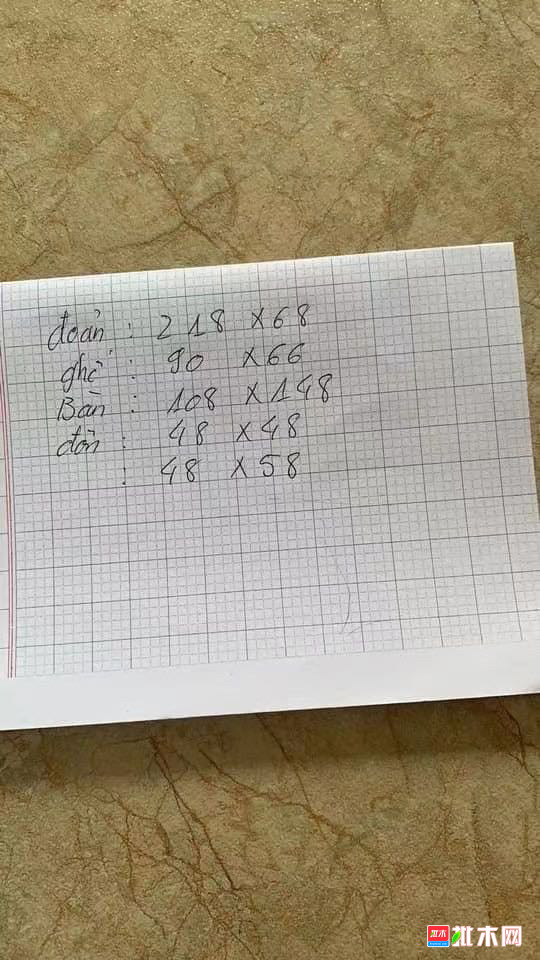 đoản : 218 x 68
ghế : 90 x 66
Bàn : 108 x 148
đôn : 48 x 48
: 48 x 58
批木网
批木网